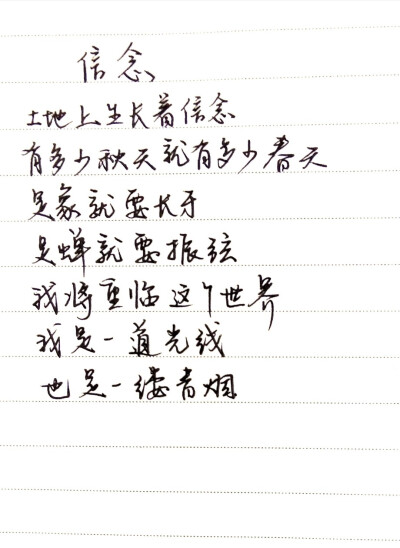 信念
土地上生长着信念
有多少秋天就有多少春天
是象就要长牙
是蝉就要振弦
我将重临这个世界
我是一道光线
也是一缕青烟